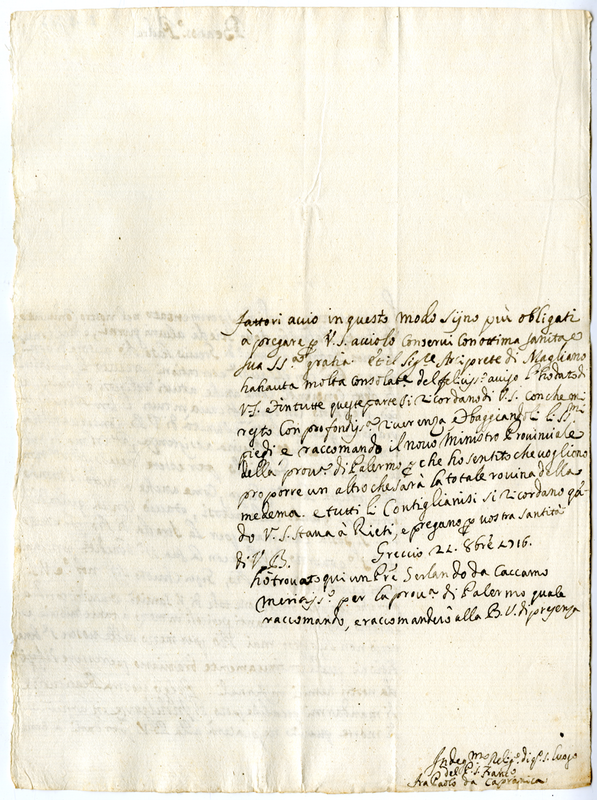 fattori acciò in questo modo sijno più obligati
à pregare p V.S. acciò lo conservi con ottima sanità e
sua SS.ma gratia. et il Sig.re Arciprete di Magliano
ha hauta molta consolat.e del felicis.o aviso l'ho dato di
V.S. e in tutte queste parte si ricordano di V.S. con che mi
resto con profondis.a riverenza e baggiandoli li SS.mi
piedi e raccomando il novo Ministro Provinciale
della prov.a di Palermo che ho sentito che vogliono
proporre un altro che sarà la totale rovina della
medema. e tutti li Contiglianisi si ricordano qñ
do V.S. stava à Rieti, e pregano p vostra santità
di V.B. Greccio 22. 8bre 1716.
hò trovato qui un Pre Serlando da Caccamo
per la prov.a di Palermo quale
raccomando, e raccomanderò alla B.V. di presenza
Indeg.mo Relig.o di q.o S. luogo
del P. S. Fran.co
fra Paolo da Capranica